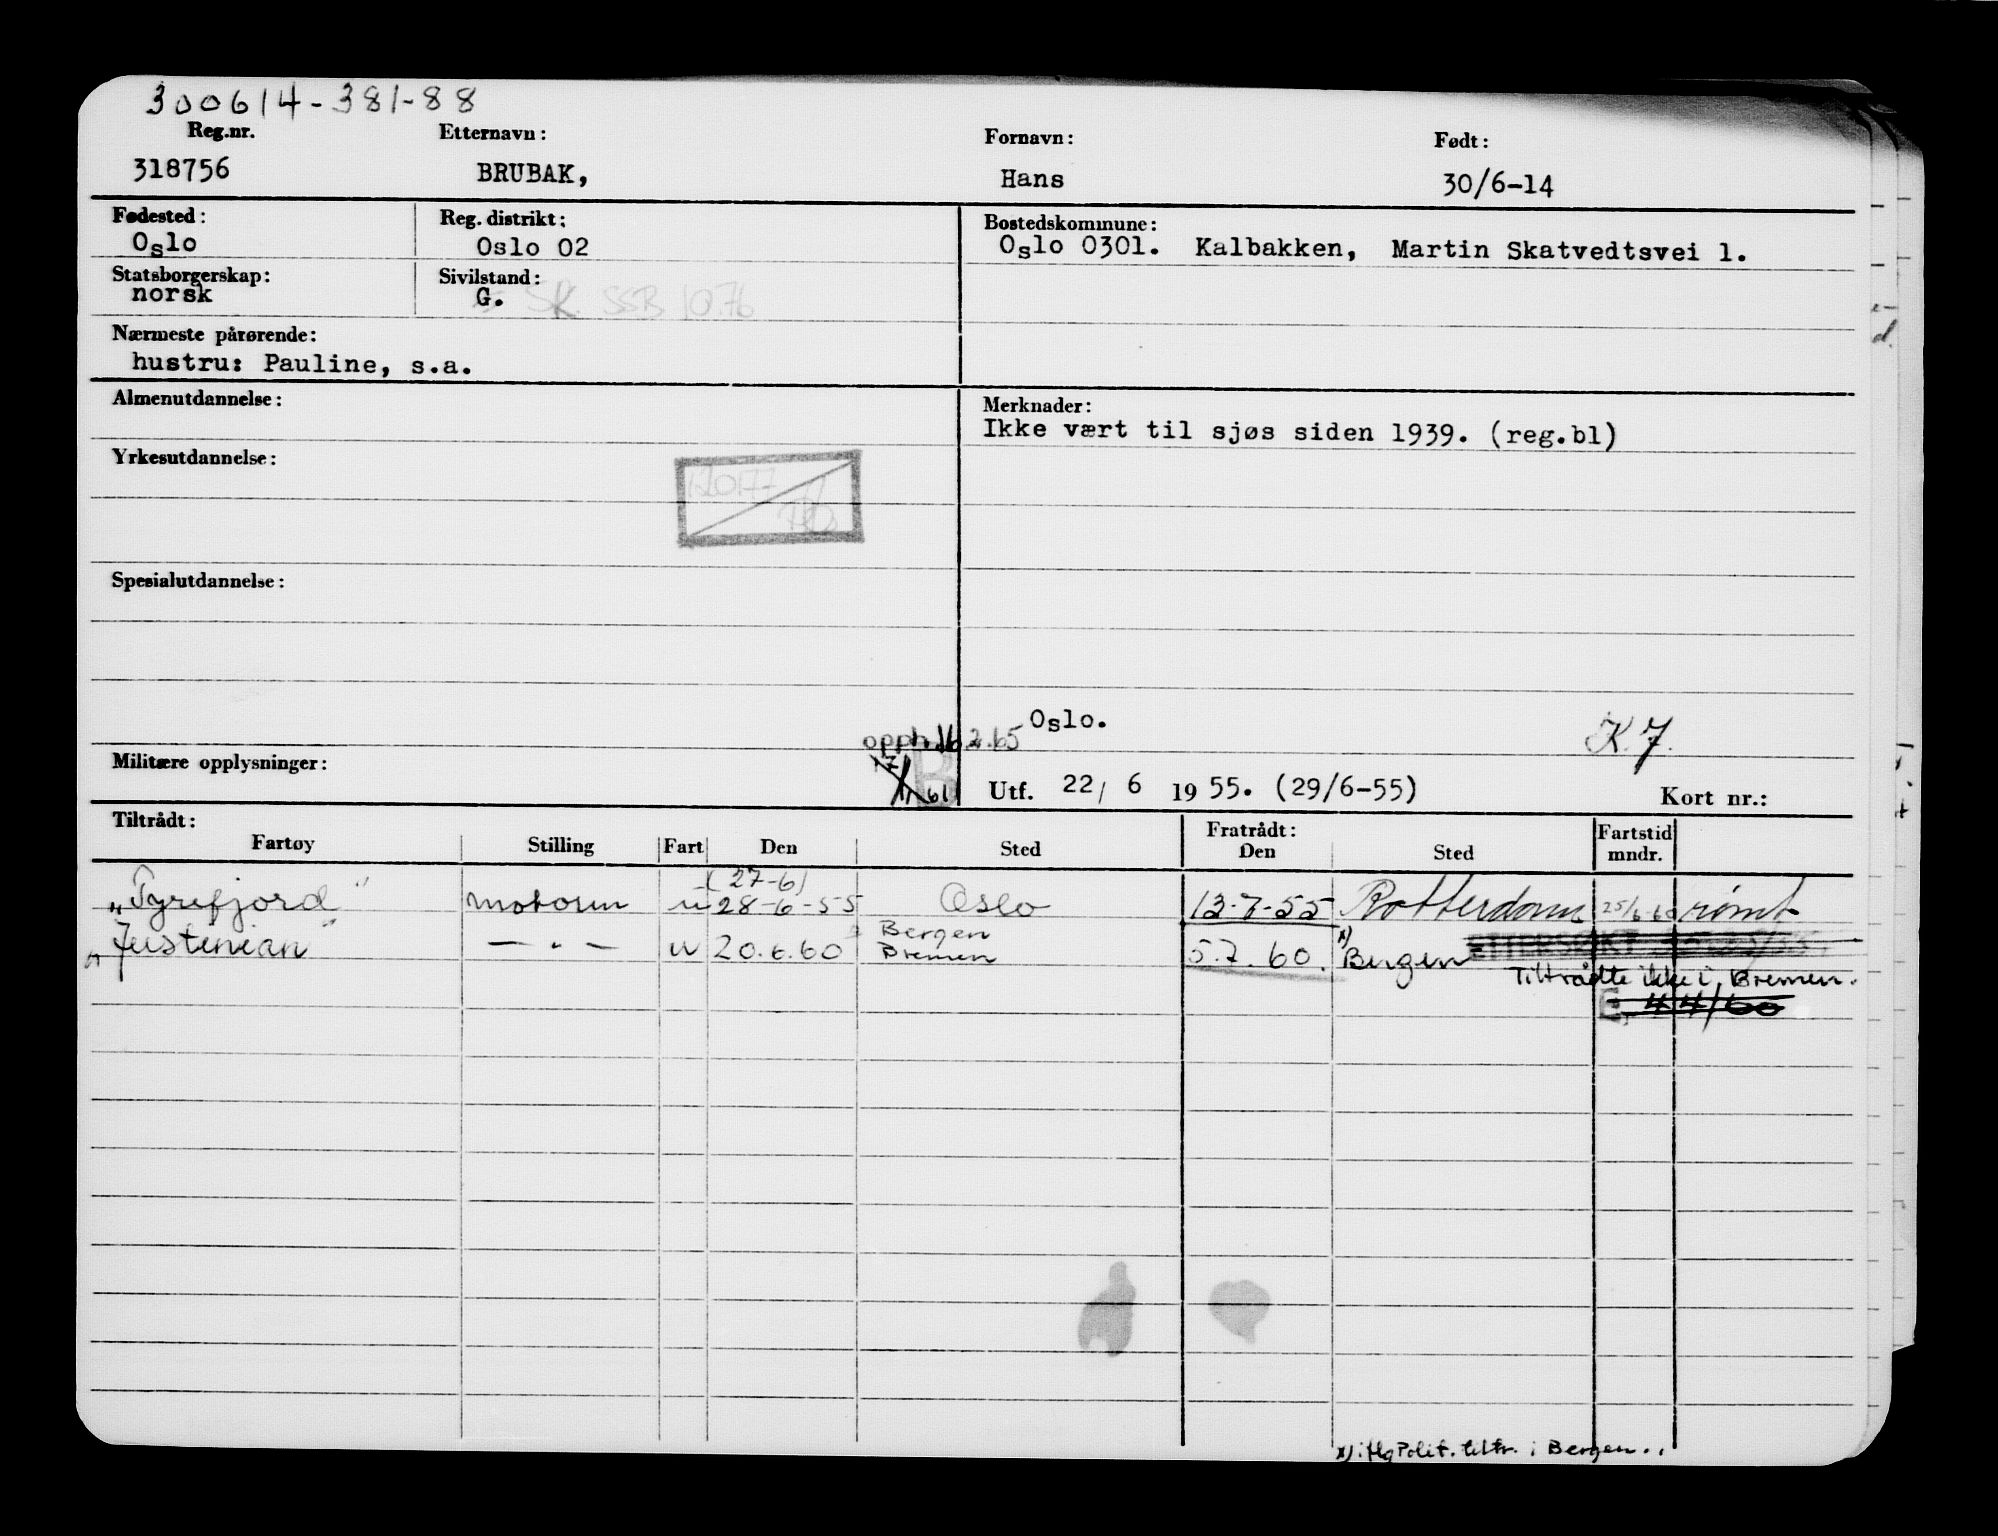 300614-381-88
Reg.nr. Etternavn: Fornavn: Født:
318756 BRUBAK, Hans 30/6-14
Fødested: Reg. distrikt: Bostedskommune:
Oslo Oslo 02 Oslo 0301. Kalbakken, Martin Skatvedtsvei 1.
Statsborgerskap: Sivilstand:
norsk G. SK SSB 10.76
Nærmeste pårørende:
hustru: Pauline, s.a.
Almenutdannelse: Merknader:
Ikke vært til sjøs siden 1939. (reg.bl)
Yrkesutdannelse:
Spesialutdannelse:
Oslo. K.7.
opph. 16.2.65
Militære opplysninger:
Utf. 22/ 6 1955. (29/6-55) Kort nr.:
Tiltrådt: Fratrådt: Fartstid
Fartøy Stilling Fart Den Sted Den Sted mndr.
(27-6)
"Tyrefjord" motorm u 28-6-55 Oslo 13-7-55 Rotterdam 25/6-60 rømt
Bergen
"Justinian" — " — u 20.6.60 Bremen 5.7.60. x) Bergen ETTERSØKT
Tiltrådte ikke i Bremen.
E. 44/60
x) iflg Polit. tiltr. i Bergen..